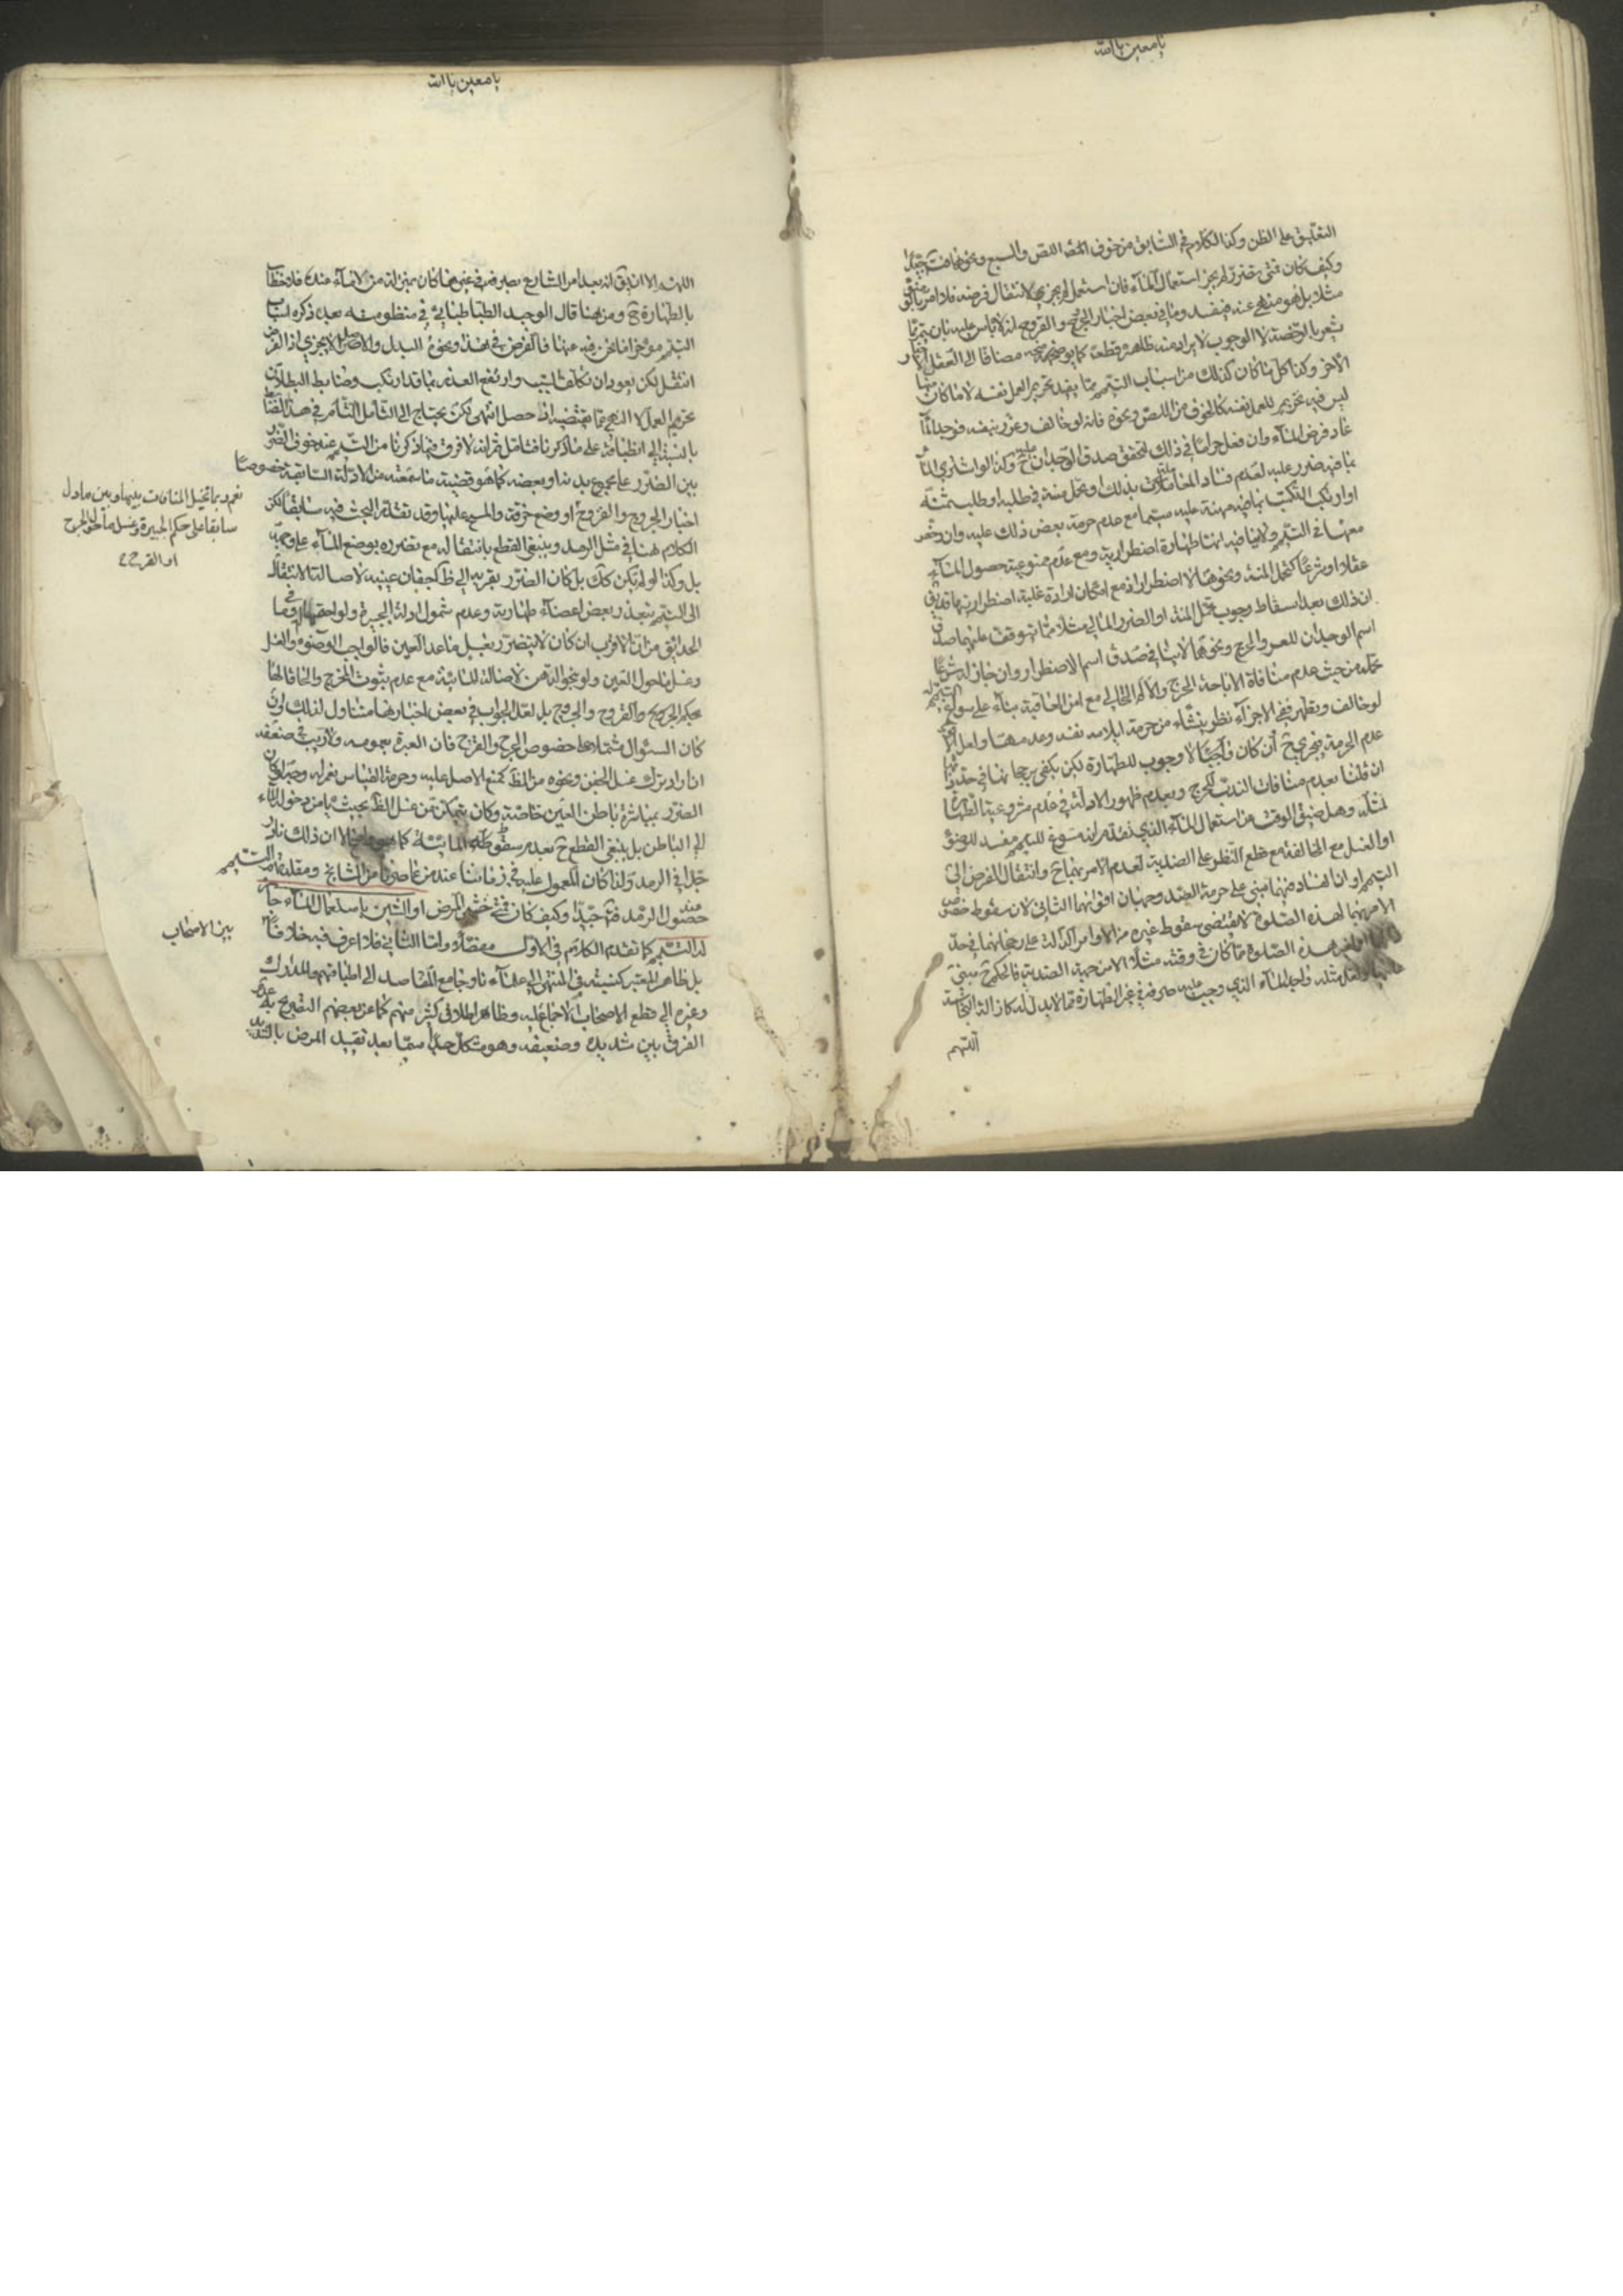 يا معين يا الله
التعليق على الظن وكذا الكلام في السابق من خوف اللص والسبع ونحوهما فتأمل جيدا
وكيف كان فمتى تضرر لم يجز استعمال الماء فان استعمل لم يجز لانتقال فرضه فلا امر بالوضوء
مثلا بل هو منهي عنه فيفسد وما في بعض اخبار الجروح والقروح انه لا باس عليه بان يتيمم مما
يشعر بالرخصة لا الوجوب لا يراد منه ظاهره قطعا كما يوضحه مضافا الى العقل الاخبار
الاخر وكذا كل ما كان كذلك من اسباب التيمم مما يفيد تحريم العمل نفسه لا ما كان منها
ليس فيه تحريم للعمل نفسه كالخوف من اللص ونحوه فانه لو خالف وغرر بنفسه فوجد الماء
عاد فرض الماء وان فعل حراما في ذلك لتحقق صدق الوجدان ح وكذا لو اشترى الماء
بما فيه ضرر عليه لعدم فساد المعاملات بذلك او تحمل منة في طلبه او طلب ثمنه
او ارتكب التكسب بما فيه مهنة عليه سيما مع عدم حرمة بعض ذلك عليه وان دخص
معها في التيمم ولا ينافيه انها طهارة اضطرارية ومع عدم ممنوعية حصول الماء
عقلا او شرعا كتحمل المنة ونحوها لا اضطرار اذ مع امكان ارادة غلبة اضطراريتها قد يق
ان ذلك بعد اسقاط وجوب تحمل المنة او الضرر المالي مثلا مما يتوقف عليهما صدق
اسم الوجدان للعسر والحرج ونحوهما لا ينافي صدق اسم الاضطرار وان جاز له شرعا
تحمله من حيث عدم منافاة الاباحة الحرج والالم الحالي مع امن العاقبة بناء على تسويغه التيمم
لو خالف وتطهر ففي الاجزاء نظر ينشاء من حرمة ايلامه نفسه وعدمها ولعل الاقوى
عدم الحرمة فيجزي ح ان كان واجبا لا وجوب للطهارة لكن يكفي رجحانها في حد ذاتها
ان قلنا بعدم منافات الندب للحرج وبعدم ظهور الادلة في عدم مشروعية الطهارة
لمثله وهل ضيق الوقت من استعمال الماء الذي تقدم انه مسوغ للتيمم مفسد للوضوء
او الغسل مع المخالفة مع قطع النظر على الضدية لعدم الامر بهما ح وانتقال الفرض الى
التيمم او ان الفساد فيهما مبني على حرمة الضد وجهان اقواهما الثاني لان سقوط خصوص
الامر بهما لهذه الصلوة لا يقتضي سقوط غيره من الاوامر الدالة على رجحانهما في حد
هذه الصلوة مما كان في وقته مثلا الا من جهة الضدية فالحكم ح مبني
عليها ولعل مثله واجد الماء الذي وجب عليه صرفه في غير الطهارة مما لا بدل له كازالة النجاسة
اللهم
يا معين يا الله
اللهم الا ان يق انه بعد امر الشارع بصرفه في غيرها كان بمنزلة من لا ماء عنده فلا خطاب
بالطهارة ح ومن هنا قال الوحيد الطباطبائي في منظومته بعد ذكره اسباب
التيمم مؤخرا ما نحن فيه عنها فالفرض في هذا ونحوه البدل والاصل لا يجزي اذ الفرض
انتقل لكن يعود ان تكلفا السبب وارتفع العذر بما قد ارتكب وضابط البطلان
تحريم العمل لا النهي عما يقتضيه اذا حصل انتهى لكن يحتاج الى التامل التام في هذا الضابط
بالنسبة الى انطباقه على ما ذكرنا فتامل ثم انه لا فرق فيما ذكرنا من التيمم عند خوف الضرر
بين الضرر على مجموع بدنه او بعضه كما هو قضية ما سمعته من الادلة السابقة خصوصا
اخبار الجروح والقروح او وضع خرقة والمسح عليها وقد تقدم البحث فيه سابقا لكن
الكلام هنا في مثل الرمد وينبغي القطع بانتقاله مع تضرره بوضع الماء على وجهه
بل وكذا لو لم يكن كك بل كان الضرر يقربه الى ظ كجفان عينيه لاصالة الانتقال
الى التيمم بتعذر بعض اعضاء طهارته وعدم شمول ادلة الجبيرة ولواحقها وما في
الحدائق من ان الاقرب ان كان لا يتضرر بغسل ما عدا العين فالواجب الوضوء والغسل
وغسل ما حول العين ولو بنحو الدهن لاصالة المائية مع عدم ثبوت المخرج والحاقا لها
بحكم الجروح والقروح والجروح بل لعل الجواب في بعض اخبارها متناول لذلك لو ان
كان السئوال مشتملا على خصوص الجرح والقرح فان العبرة بعمومه ولا ريب في ضعفه
ان اراد ترك غسل الجفن ونحوه من الظ كمنع الاصل عليه وحرمة القياس نعم له وجه لو كان
الضرر بمباشرة باطن العين خاصة وكان يتمكن من غسل الظ بحيث يامن دخول الماء
الى الباطن بل ينبغي القطع ح بعدم سقوط المائية كما الا ان ذلك نادر
جدا في الرمد ولذا كان المعمول عليه في زماننا عند من عاصرنا من المشايخ ومقلديهم التيمم
عند حصول الرمد فتامل جيدا وكيف كان فمتى خشي المرض او الشين باستعمال الماء جاز
له التيمم كما تقدم الكلام في الاول مفصلا واما الثاني فلا اعرف فيه خلافا
بل ظاهر المعتبر كنسبته في المنتهى الى علمائنا وجامع المقاصد الى اطباقهم والمدارك
وغيره الى قطع الاصحاب الاجماع عليه وظاهر اطلاق كثير منهم كما عن بعضهم التصريح به عدم
الفرق بين شديده وضعيفه وهو مشكل جدا سيما بعد تقييد المرض بالشديد
نعم ربما تخيل المنافات بينها وبين ما دل
سابقا على حكم الجبيرة وغسل ما حول الجرح
او القرح
بين الاصحاب